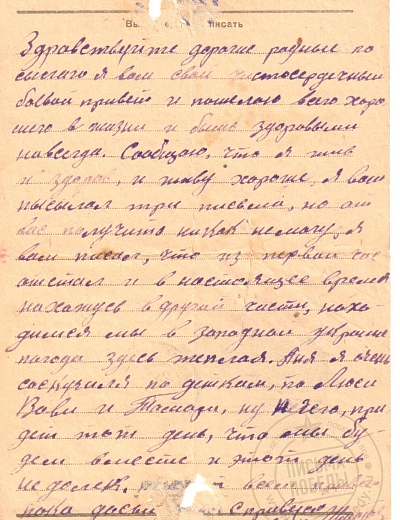 Вы писать
Здравствуйте дорогие родные по
сылаю я вам свой чистосердечный
боевой привет и пожелаю всего хоро
шего в жизни и быть здоровыми
навсегда. Сообщаю, что я жив
и здоров, и живу хорошо, я вам
писылал три письма, но от
вас получить никак немогу, я
вам писал, что из первой час
отстал и в настоящее время
нахожусь в другой части, нахо-
димся мы в западной Украине
погода здесь теплая. Аня я очень
соскучился по деткам, по Люси
Вови и Тамари, ну н чего, при
дет тот день, что мы бу-
дем вместе и этот день
не далек. и всем
пока досви справу